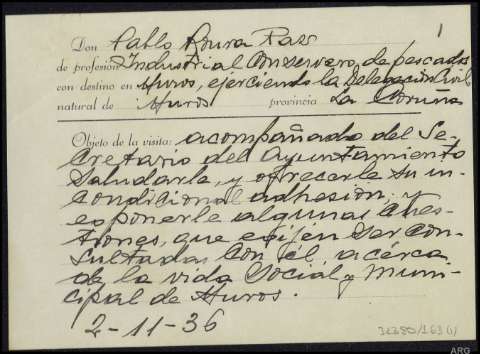 1
Don Pablo Roura Ras
de profesión Industrial Conservero, de pescados
con destino en Muros, ejerciendo la Delegación Civil
natural de Muros provincia La Coruña
Objeto de la visita: acompañado del Se-
cretario del Ayuntamiento
Saludarle, y ofrecerle su in-
condicional adhesion, y
exponerle algunas Cues-
tiones, que exijen ser Con-
sultadas con él, acerca
de la vida Social y Muni-
cipal de Muros.
2-11-36
32380/1636/1
ARG